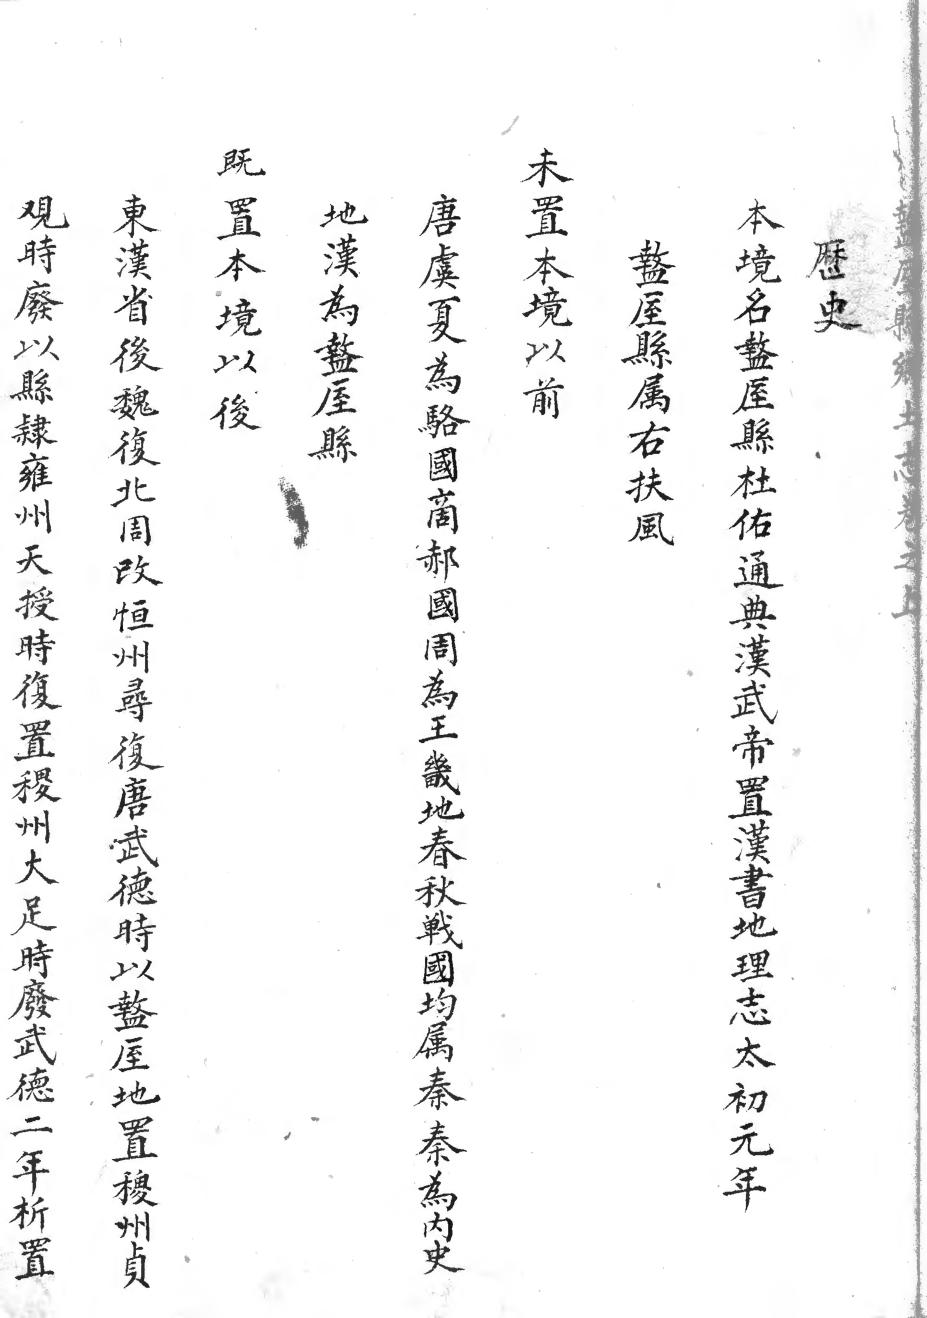 盩厔縣鄉土志卷之上
歷史
本境名盩厔縣杜佑通典漢武帝置漢書地理志太初元年
盩厔縣属右扶風
未置本境以前
唐虞夏為駱國啇郝國周為王畿地春秋戰國均属秦秦為内史
地漢為盩厔縣
既置本境以後
東漢省後魏復北周改恒州尋復唐武德時以盩厔地置稷州貞
观時廢以縣隷雍州天授時復置稷州大足時廢武德二年析置